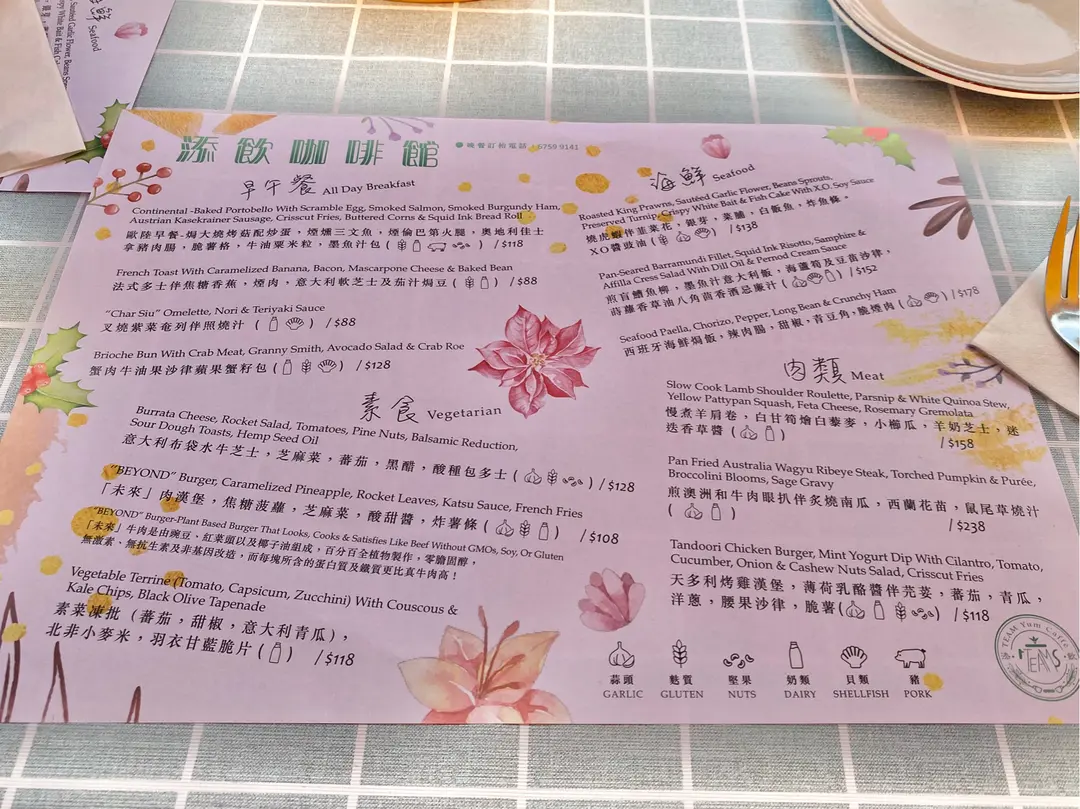 海鮮 Seafood
添飲咖啡館
晚餐訂枱電話:6759 9141
早午餐 All Day Breakfast
Continental -Baked Portobello With Scramble Egg, Smoked Salmon, Smoked Burgundy Ham,
Austrian Kasekrainer Sausage, Crisscut Fries, Buttered Corns & Squid Ink Bread Roll
歐陸早餐-焗大燒烤菇配炒蛋，煙燻三文魚，煙倫巴第火腿，奧地利佳士
拿豬肉腸，脆薯格，牛油粟米粒，墨魚汁包 ( ) /$118
French Toast With Caramelized Banana, Bacon, Mascarpone Cheese & Baked Bean
法式多士伴焦糖香蕉，煙肉，意大利軟芝士及茄汁焗豆 ( ) /$88
"Char Siu" Omelette, Nori & Teriyaki Sauce
叉燒紫菜奄列伴照燒汁 ( ) /$88
Brioche Bun With Crab Meat, Granny Smith, Avocado Salad & Crab Roe
蟹肉牛油果沙律蘋果蟹籽包 ( ) /$128
素食 Vegetarian
Burrata Cheese, Rocket Salad, Tomatoes, Pine Nuts, Balsamic Reduction,
Sour Dough Toasts, Hemp Seed Oil
意大利布袋水牛芝士，芝麻菜，蕃茄，黑醋，酸種包多士 ( ) /$128
"BEYOND" Burger, Caramelized Pineapple, Rocket Leaves, Katsu Sauce, French Fries
「未來」肉漢堡，焦糖菠蘿，芝麻菜，酸甜醬，炸薯條 ( ) /$108
"BEYOND" Burger-Plant Based Burger That Looks, Cooks & Satisfies Like Beef Without GMOs, Soy, Or Gluten
「未來」牛肉是由豌豆、紅菜頭以及椰子油組成，百分百全植物製作，零膽固醇，
無激素、無抗生素及非基因改造，而每塊所含的蛋白質及鐵質更比真牛肉高！
Vegetable Terrine (Tomato, Capsicum, Zucchini) With Couscous &
Kale Chips, Black Olive Tapenade
素菜凍批 (蕃茄，甜椒，意大利青瓜)，
北非小麥米，羽衣甘藍脆片 ( ) /$118
海鮮 Seafood
Roasted King Prawns, Sautéed Garlic Flower, Beans Sprouts,
Preserved Turnip, Crispy White Bait & Fish Cake With X.O. Soy Sauce
燒虎蝦伴韮菜花，銀芽，菜脯，白飯魚，炸魚條。
XO醬豉油 ( ) /$138
Pan-Seared Barramundi Fillet, Squid Ink Risotto, Samphire &
Affilla Cress Salad With Dill Oil & Pernod Cream Sauce
煎盲鰽魚柳，墨魚汁意大利飯，海蘆筍及豆苗沙律，
蒔蘿香草油八角茴香酒忌廉汁 ( ) /$152
Seafood Paella, Chorizo, Pepper, Long Bean & Crunchy Ham
西班牙海鮮焗飯，辣肉腸，甜椒，青豆角，脆煙肉 ( ) /$178
肉類 Meat
Slow Cook Lamb Shoulder Roulette, Parsnip & White Quinoa Stew,
Yellow Pattypan Squash, Feta Cheese, Rosemary Gremolata
慢煮羊肩卷，白甘筍燴白藜麥，小櫛瓜，羊奶芝士，迷
迭香草醬 ( ) /$158
Pan Fried Australia Wagyu Ribeye Steak, Torched Pumpkin & Purée,
Broccolini Blooms, Sage Gravy
煎澳洲和牛肉眼扒伴炙燒南瓜，西蘭花苗，鼠尾草燒汁
( ) /$238
Tandoori Chicken Burger, Mint Yogurt Dip With Cilantro, Tomato,
Cucumber, Onion & Cashew Nuts Salad, Crisscut Fries
天多利烤雞漢堡，薄荷乳酪醬伴芫荽，蕃茄，青瓜，
洋蔥，腰果沙律，脆薯( ) /$118
蒜頭 麩質 堅果 奶類 貝類 豬
GARLIC GLUTEN NUTS DAIRY SHELLFISH PORK
TEAM Yum Caffe
TEAMS